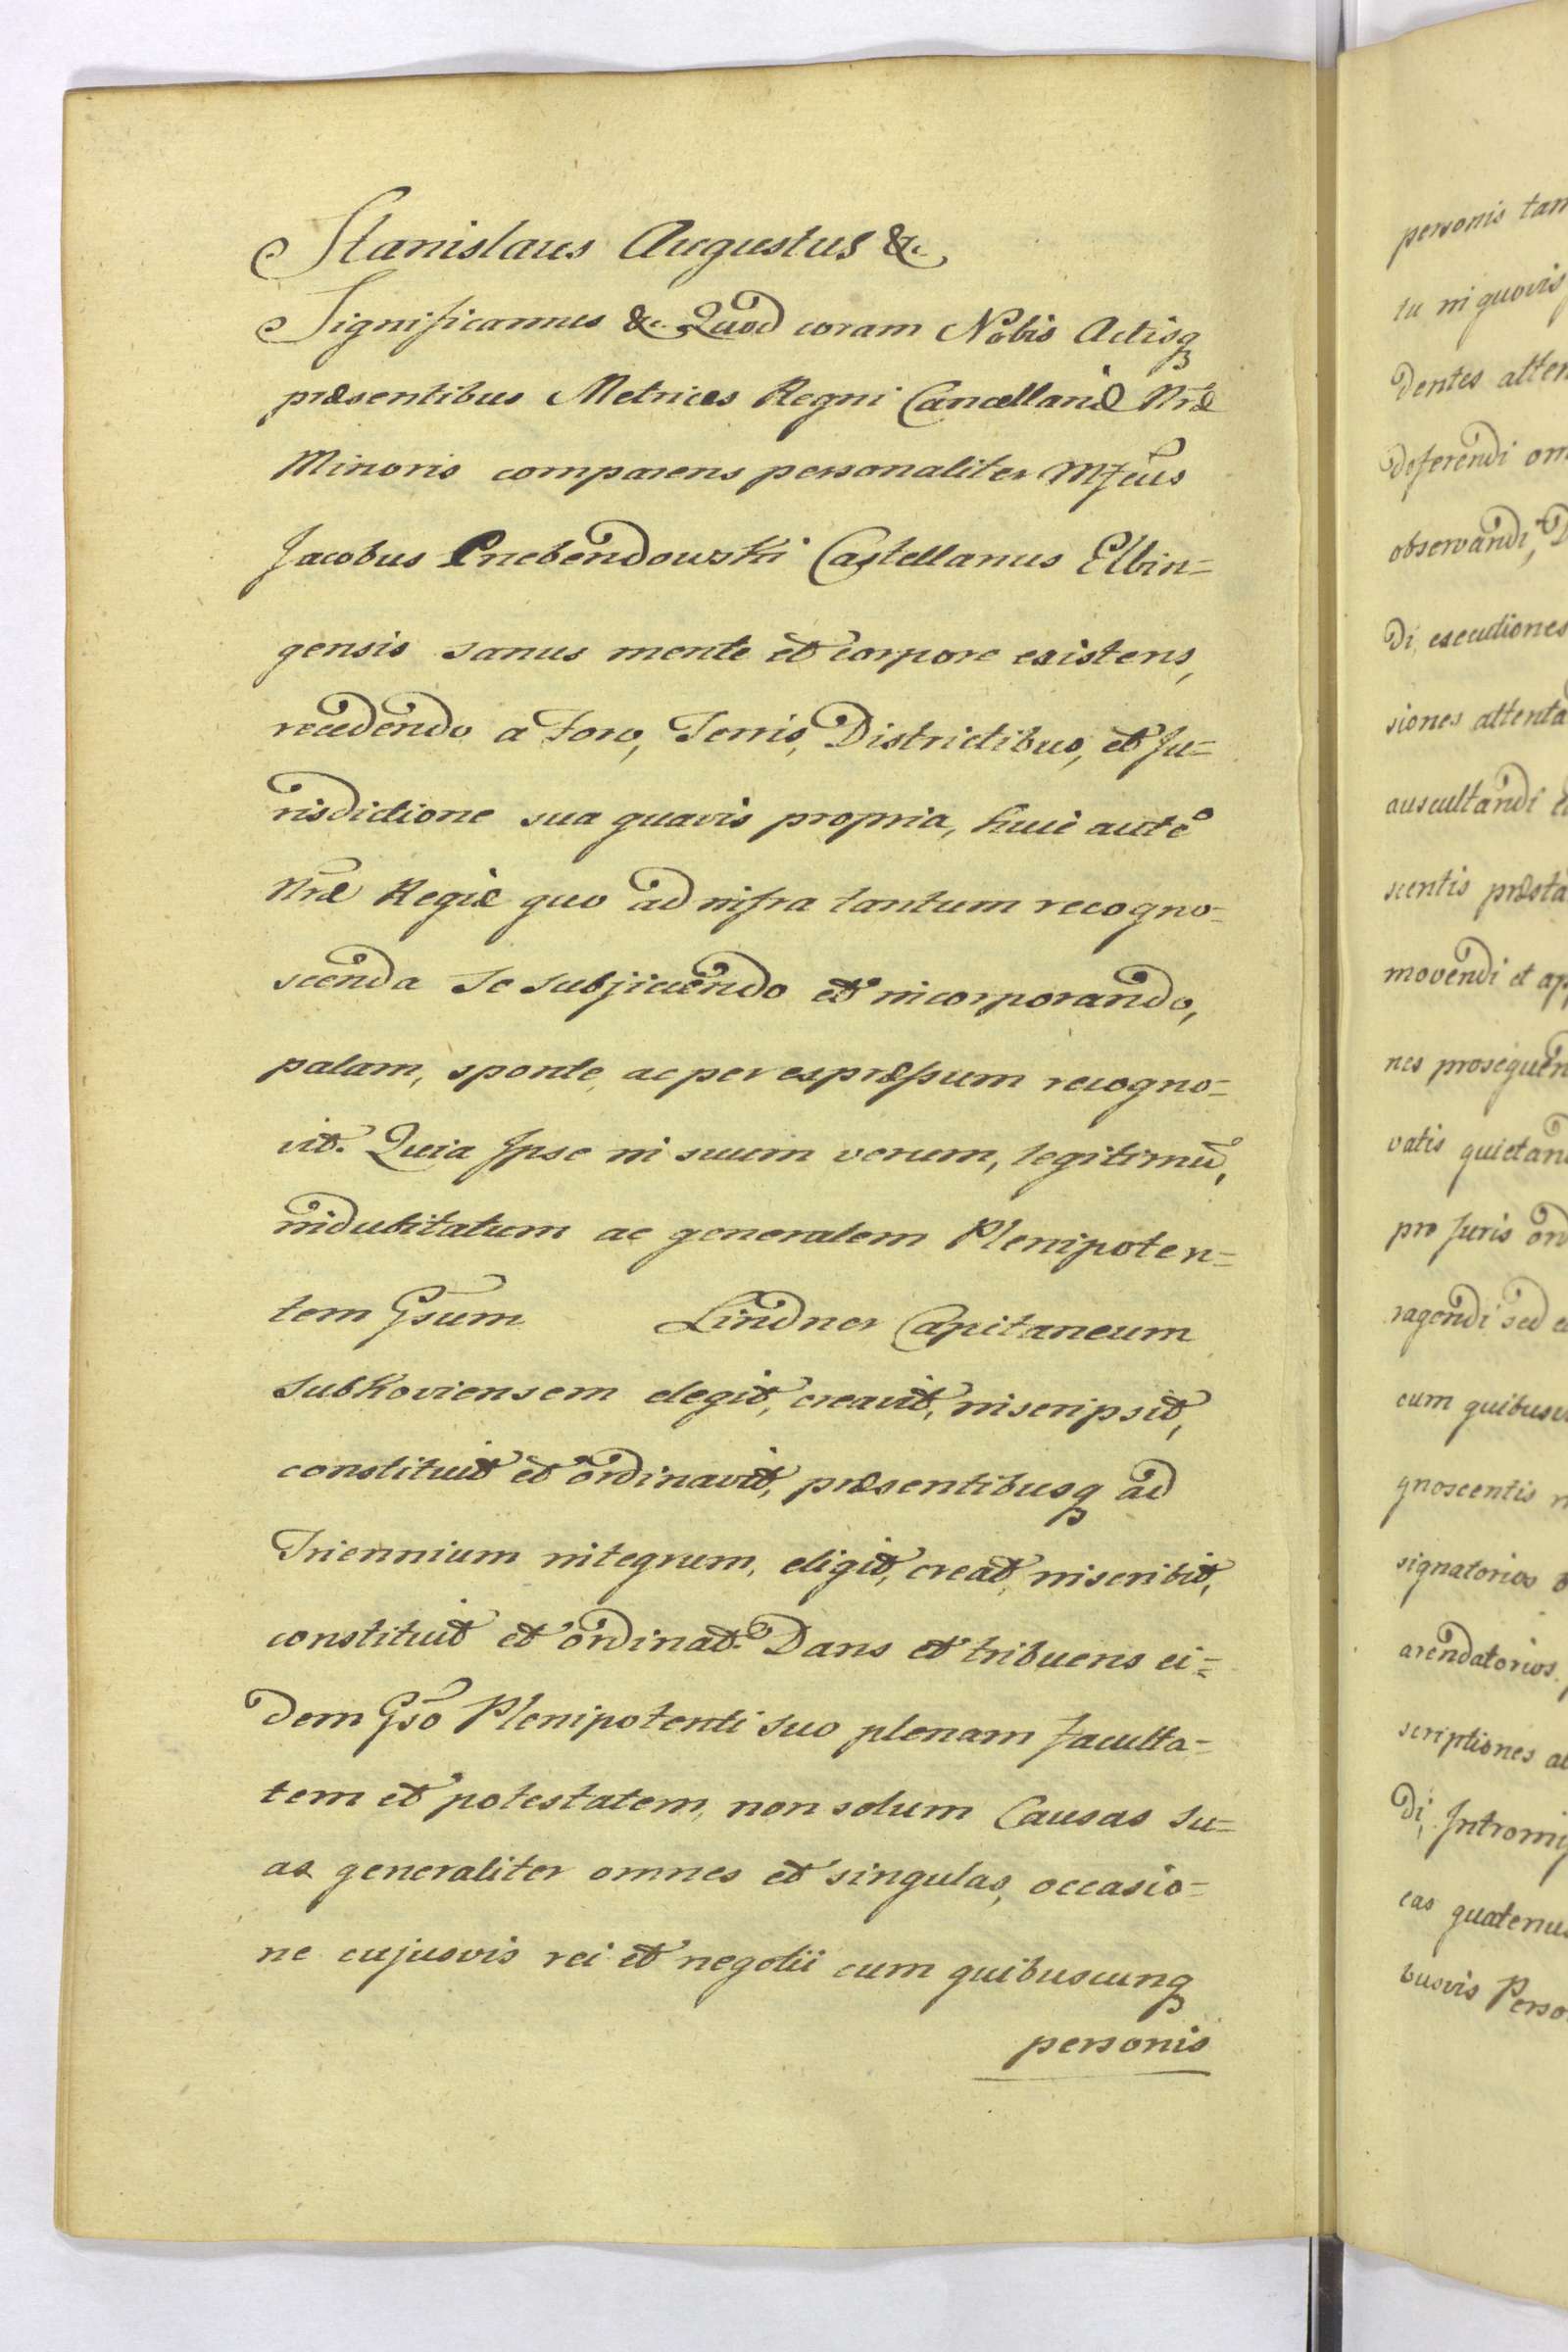 Stanislaus Augustus &c.
Significamus &c. Quod coram Nobis Actisq
præsentibus Metrices Regni Cancellariæ Nræ
Minoris comparens personaliter Mfcus
Jacobus Przebendowski Castellanus Elbin=
gensis sanus mente et corpore existens,
recedendo a Foro, Terris, Districtibus, et Ju=
risdictione sua quavis propria, huic autē
Nræ Regiæ quo ad infra tantum recogno=
scenda se subjiciendo et incorporando,
palam, sponte, ac per expræssum recogno=
vit. Quia Ipse in suum verum, legitimū,
indubitatum ac generalem Plenipoten=
tem Gsum Lindner Capitaneum
Subkoviensem elegit, creavit, inscripsit,
constituit et ordinavit, præsentibusq ad
Triennium integrum, eligit, creat, inscribit,
constituit et ordinat. Dans et tribuens ei=
dem Gso Plenipotenti suo plenam faculta=
tem et potestatem, non solum Causas su=
as generaliter omnes et singulas, occasio=
ne cujusvis rei et negotii cum quibuscunq
personis
personis tam
tu in quovis
dentes atten
deferendi om
observandi, D
di, executiones
siones attenta
auscultandi e
scentis præsta
movendi et ap
nes prosequen
vatis quietan
pro Juris ord
ragendi sed e
cum quibusv
gnoscentis n
signatorios
arendatorios
scriptiones
di, Intromiss
cas quatenus
busvis Perso